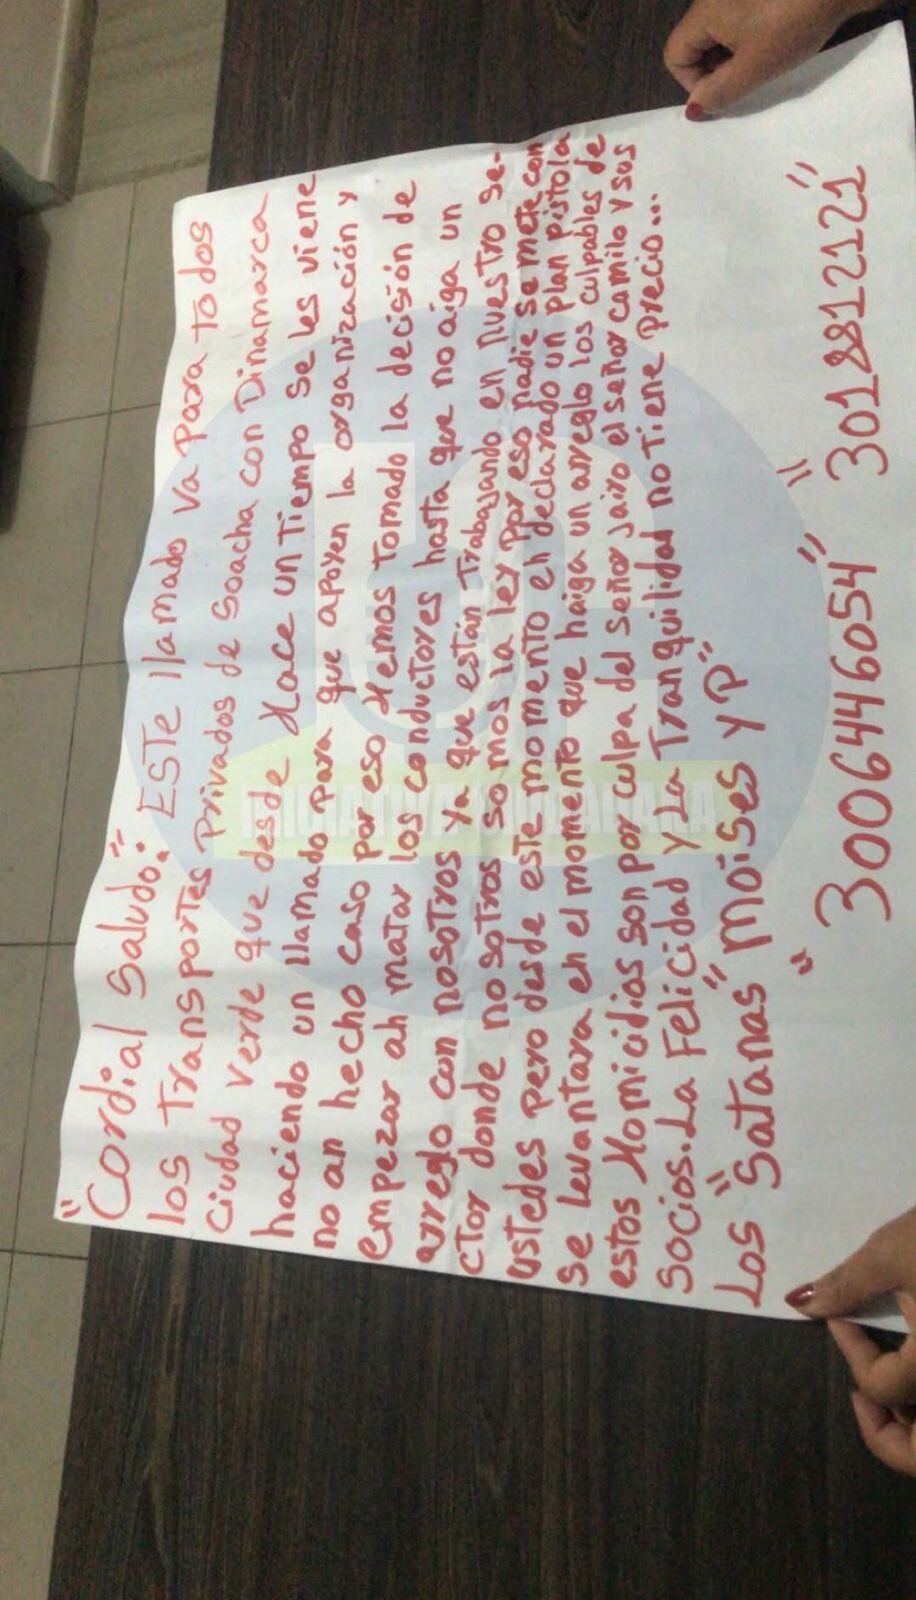 "Cordial Saludo." ESTE llamado va Para Todos
los Transportes Privados de Soacha con Dinamarca
Ciudad verde que desde Hace un Tiempo se les viene
haciendo un llamado Para que apoyen la organización y
no an hecho caso por eso Hemos Tomado la decisión de
empezar ah matar los conductores hasta que no aiga un
arreglo con nosotros ya que están Trabajando en nuestro se-
ctor donde nosotros somos la ley Por eso nadie se mete con
ustedes pero desde este momento eh declarado un plan pistola
se levantara en el momento que haiga un arreglo los culpables de
estos Homicidios son por culpa del señor jairo el señor camilo y sus
socios. La Felicidad y La Tranquilidad no Tiene precio...
Los "Satanas" "moises y P"
"3006446054" "3018812121"
INICIATIVA CIUDADANA